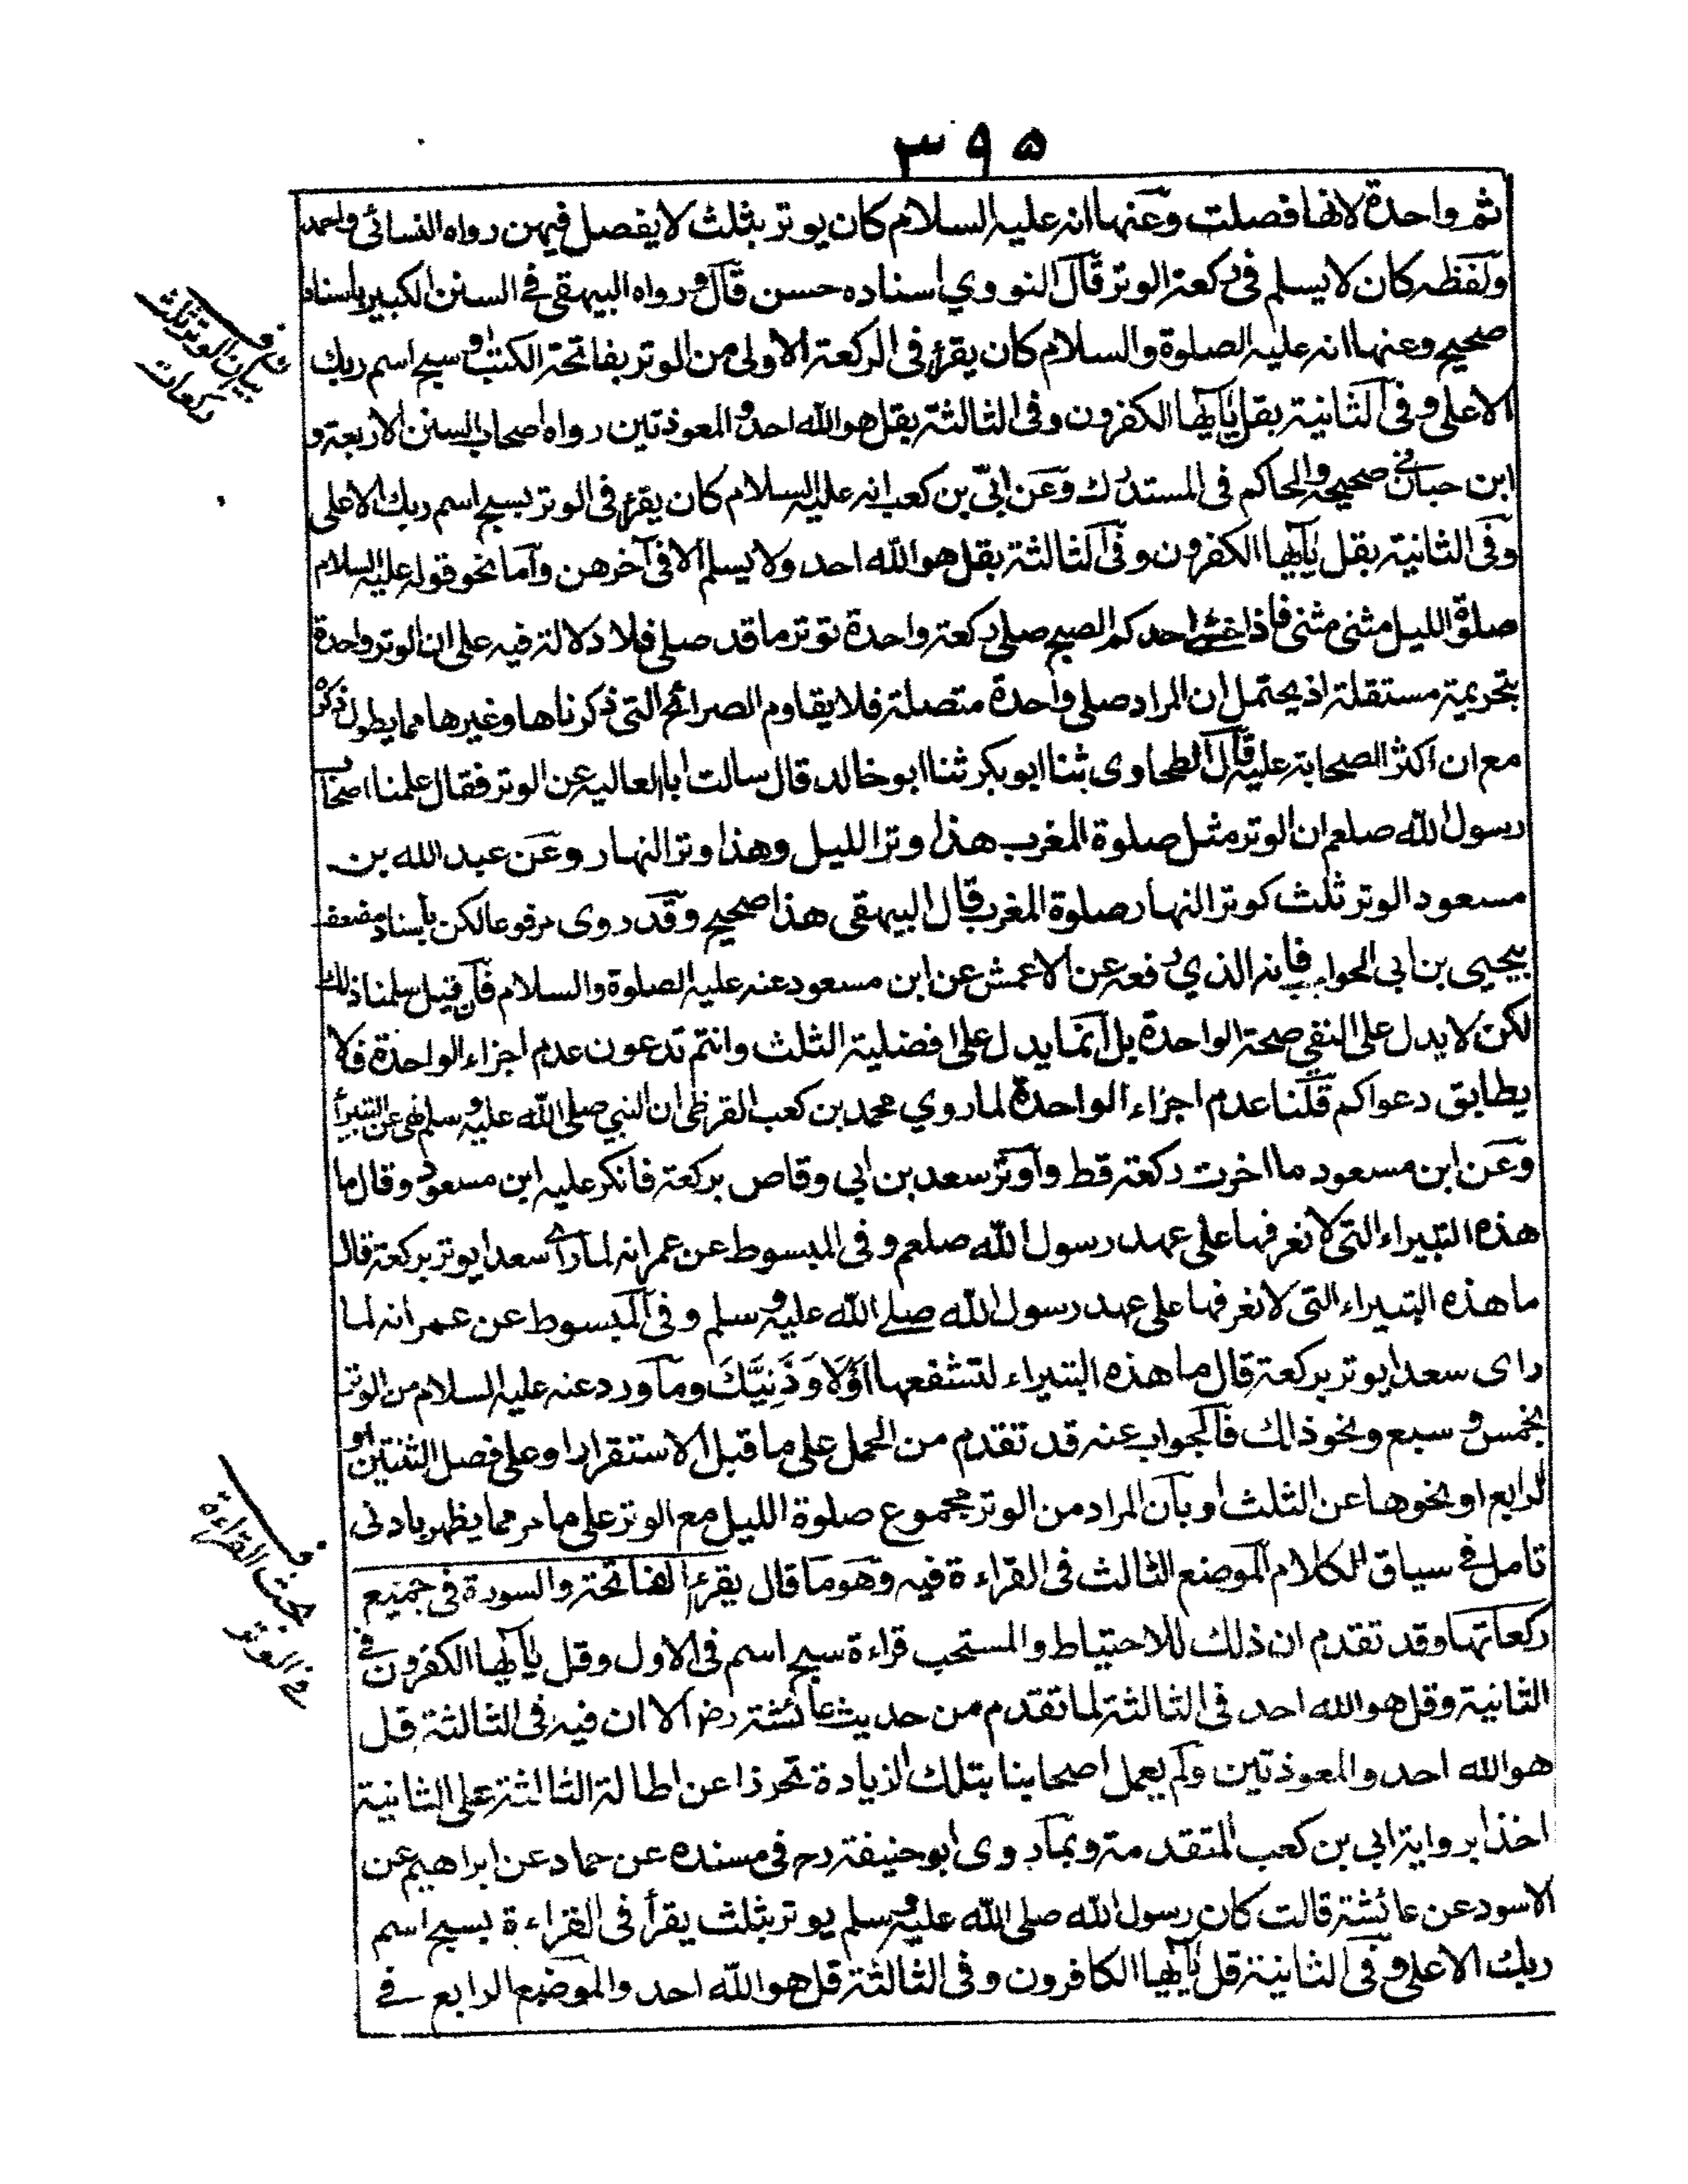 ٣٩٥
ثم واحدة لانها فصلت وعنها انه عليه السلام كان يوتر بثلث لا يفصل فيهن رواه النسائى واحمد
ولفظه كان لا يسلم فى ركعة الوتر قال النووي اسناده حسن قال ورواه البيهقى فى السنن الكبير باسناد
صحيح وعنها انه عليه الصلوة والسلام كان يقرؤ فى الركعة الاولى من الوتر بفاتحة الكتب وسبح اسم ربك
الاعلى وفى الثانية بقل يايها الكفرون وفى الثالثة بقل هو الله احد والمعوذتين رواه اصحاب السنن الاربعة و
ابن حبان فى صحيحه والحاكم فى المستدرك وعن ابيّ بن كعب انه عليه السلام كان يقرؤ فى الوتر بسبح اسم ربك الاعلى
وفى الثانية بقل يايها الكفرون وفى الثالثة بقل هو الله احد ولا يسلم الا فى آخرهن واما نحو قوله عليه السلام
صلوة الليل مثنى مثنى فاذا خشى احدكم الصبح صلى ركعة واحدة توتر ما قد صلى فلا دلالة فيه على ان الوتر واحدة
بتحريمة مستقلة اذ يحتمل ان المراد صلى واحدة متصلة فلا يقاوم الصرائح التى ذكرناها وغيرها مما يطول ذكره
مع ان اكثر الصحابة عليه قال الطحاوى ثنا ابو بكر ثنا ابو خالد قال سالت ابا العالية عن الوتر فقال علمنا اصحاب
رسول الله صلعم ان الوتر مثل صلوة المغرب هذا وتر الليل وهذا وتر النهار وعن عبد الله بن
مسعود الوتر ثلث كوتر النهار صلوة المغرب قال البيهقى هذا صحيح وقد روى مرفوعا لكن باسناد مضعف
بيحيى بن ابى الحواجب فانه الذي رفعه عن الاعمش عن ابن مسعود عنه عليه الصلوة والسلام فان قيل سلمنا ذلك
لكن لا يدل على النفى صحة الواحدة بل انما يدل على افضلية الثلث وانتم تدعون عدم اجزاء الواحدة فلا
يطابق دعواكم قلنا عدم اجزاء الواحدة لما روي محمد بن كعب القرظى ان النبي صلى الله عليه وسلم نهى عن البتيراء
وعن ابن مسعود ما اخرت ركعة قط واوتر سعد بن ابي وقاص بركعة فانكر عليه ابن مسعود وقال ما
هذه البتيراء التى لا نعرفها على عهد رسول الله صلعم وفى المبسوط عن عمر انه لما راے سعدا يوتر بركعة قال
ما هذه البتيراء التى لا نعرفها على عهد رسول الله صلے الله عليه وسلم وفى المبسوط عن عمر انه لما
راى سعدا يوتر بركعة قال ما هذه البتيراء لتشفعها اَوْ لَاُوَذِّنَيَّكَ وما ورد عنه عليه السلام من الوتر
بخمس وسبع ونحو ذلك فالجواب عنه قد تقدم من الحمل على ما قبل الاستقرار او على فصل الثنتين او
الرابع او نحوها عن الثلث او بان المراد من الوتر مجموع صلوة الليل مع الوتر على ما مر مما يظهر بادنى
تامل فى سياق الكلام الموضع الثالث فى القراءة فيه وهو ما قال يقرء الفاتحة والسورة فى جميع
ركعاتها وقد تقدم ان ذلك للاحتياط والمستحب قراءة سبح اسم فى الاول وقل يايها الكفرون فى
الثانية وقل هو الله احد فى الثالثة لما تقدم من حديث عائشة رض الا ان فيه فى الثالثة قل
هو الله احد والمعوذتين ولم يعمل اصحابنا بتلك الزيادة تحرزا عن اطالة الثالثة على الثانية
اخذا برواية ابي بن كعب المتقدمة وبما روى ابو حنيفة رح فى مسنده عن حماد عن ابراهيم عن
الاسود عن عائشة قالت كان رسول الله صلى الله عليه وسلم يوتر بثلث يقرأ فى القراءة بسبح اسم
ربك الاعلى وفى الثانية قل يايها الكافرون وفى الثالثة قل هو الله احد والموضع الرابع فے
بيان الوتر ثلث
ركعات
بحث القراءة
فى الوتر